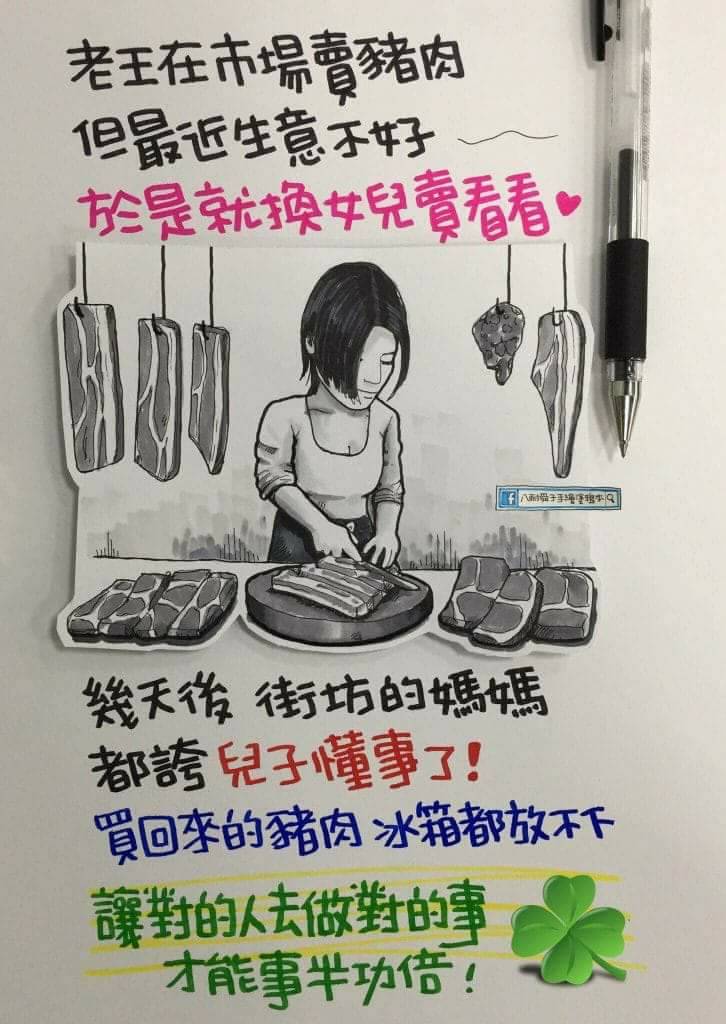 老王在市場賣豬肉
但最近生意不好
於是就換女兒賣看看
幾天後 街坊的媽媽
都誇 兒子懂事了!
買回來的豬肉 冰箱都放不下
讓對的人去做對的事
才能事半功倍!